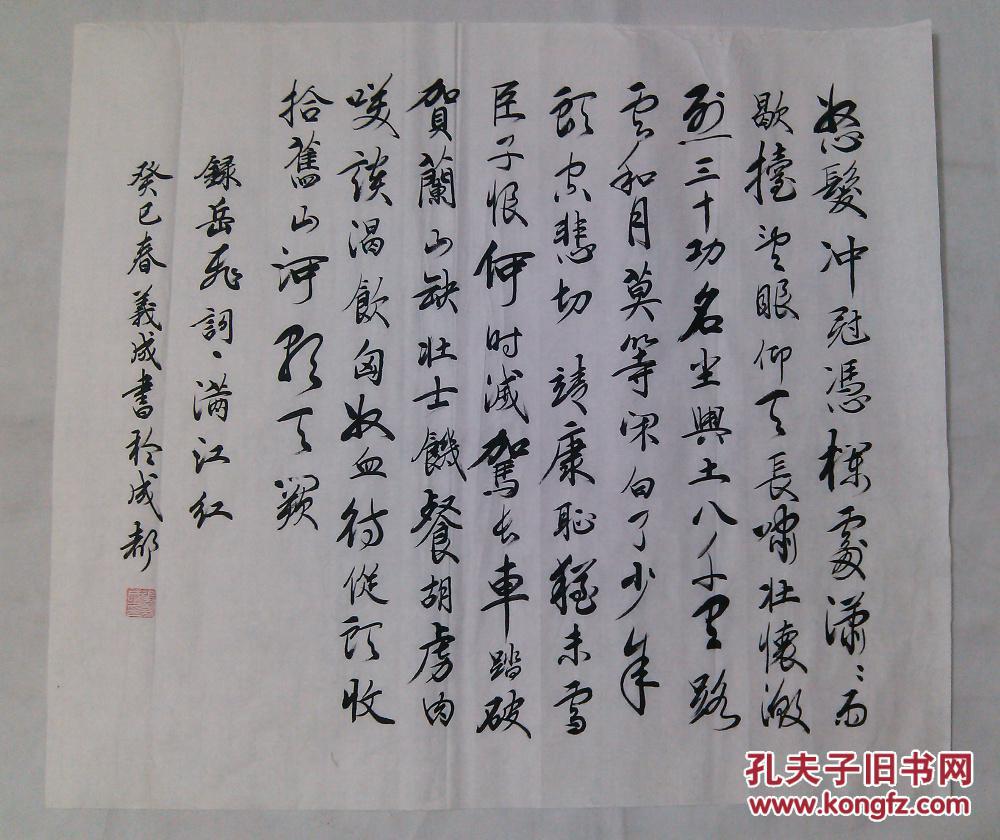 怒髮冲冠憑欄處瀟〻雨
歇擡望眼仰天長嘯壯懷激
烈三十功名尘與土八千里路
雲和月莫等闲白了少年
頭空悲切 靖康恥猶未雪
臣子恨何时滅駕长車踏破
賀蘭山缺壯士饑餐胡虜肉
咲談渴飲匈奴血待從頭收
拾舊山河朝天闕
録岳飛詞、满江红
癸巳春義成書於成都
孔夫子旧书网
www.kongfz.com